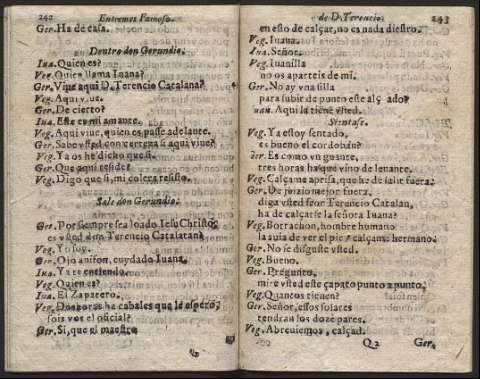 242 Entremes Famoso.
Ger. Ha de casa.
Dentro don Gerundio.
Iua. Quien es?
Veg. Quien llama Iuana?
Ger. Viue aqui D. Terencio Catalana?
Veg. Aqui viue.
Ger. De cierto?
Iua. Este es mi amante.
Veg. Aqui viue, quien es passe adelante.
Ger. Sabe vsted con certeza si aqui viue?
Veg. Ya os he dicho que si.
Ger. Que aqui reside?
Veg. Digo que si, mi colera resisto.
Sale don Gerundio.
Ger. Por siempre sea loado Iesu Christo,
es vsted don Terencio Catalatan?
Veg. Yo soy.
Ger. Ojo auison, cuydado Iuana.
Iua. Ya te entiendo.
Veg. Quien es?
Iua. El Zapatero.
Veg. Dos horas ha cabales que le espero,
sois vos el oficial?
Ger. Si, que el maestro
de D. Terencio. 243
en esto de calçar, no es nada diestro.
Veg. Iuana.
Iua. Señor.
Veg. Iuanilla
no os aparteis de mi.
Ger. No ay vna silla
para subir de punto este alçado?
Iuan. Aqui la tiene vsted.
Sientase.
Veg. Ya estoy sentado,
es bueno el cordoban?
Ger. Es como vn guante,
tres horas ha que vino de leuante.
Veg. Calçame aprisa, que he de salir fuera.
Ger. De juizio mejor fuera,
diga vsted seor Terencio Catalan,
ha de calçarse la señora Iuana?
Veg. Borrachon, hombre humano
la auia de ver el pie? calçame hermano.
Ger. No se disguste vsted.
Veg. Bueno.
Ger. Pregunto,
mire vsted este çapato punto a punto.
Veg. Quantos tienen?
Ger. Señor, essos solares
tendran los doze pares.
Veg. Abreuiemos, calçad.
Q 2 Ger.